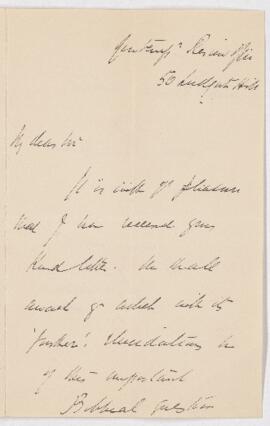 Review Office
50 Ludgate Hill
My dear Sir
It is with gt pleasure
that I have received your
kind letter. We shall
await yr article with its
'further' elucidations
of this important
Biblical question